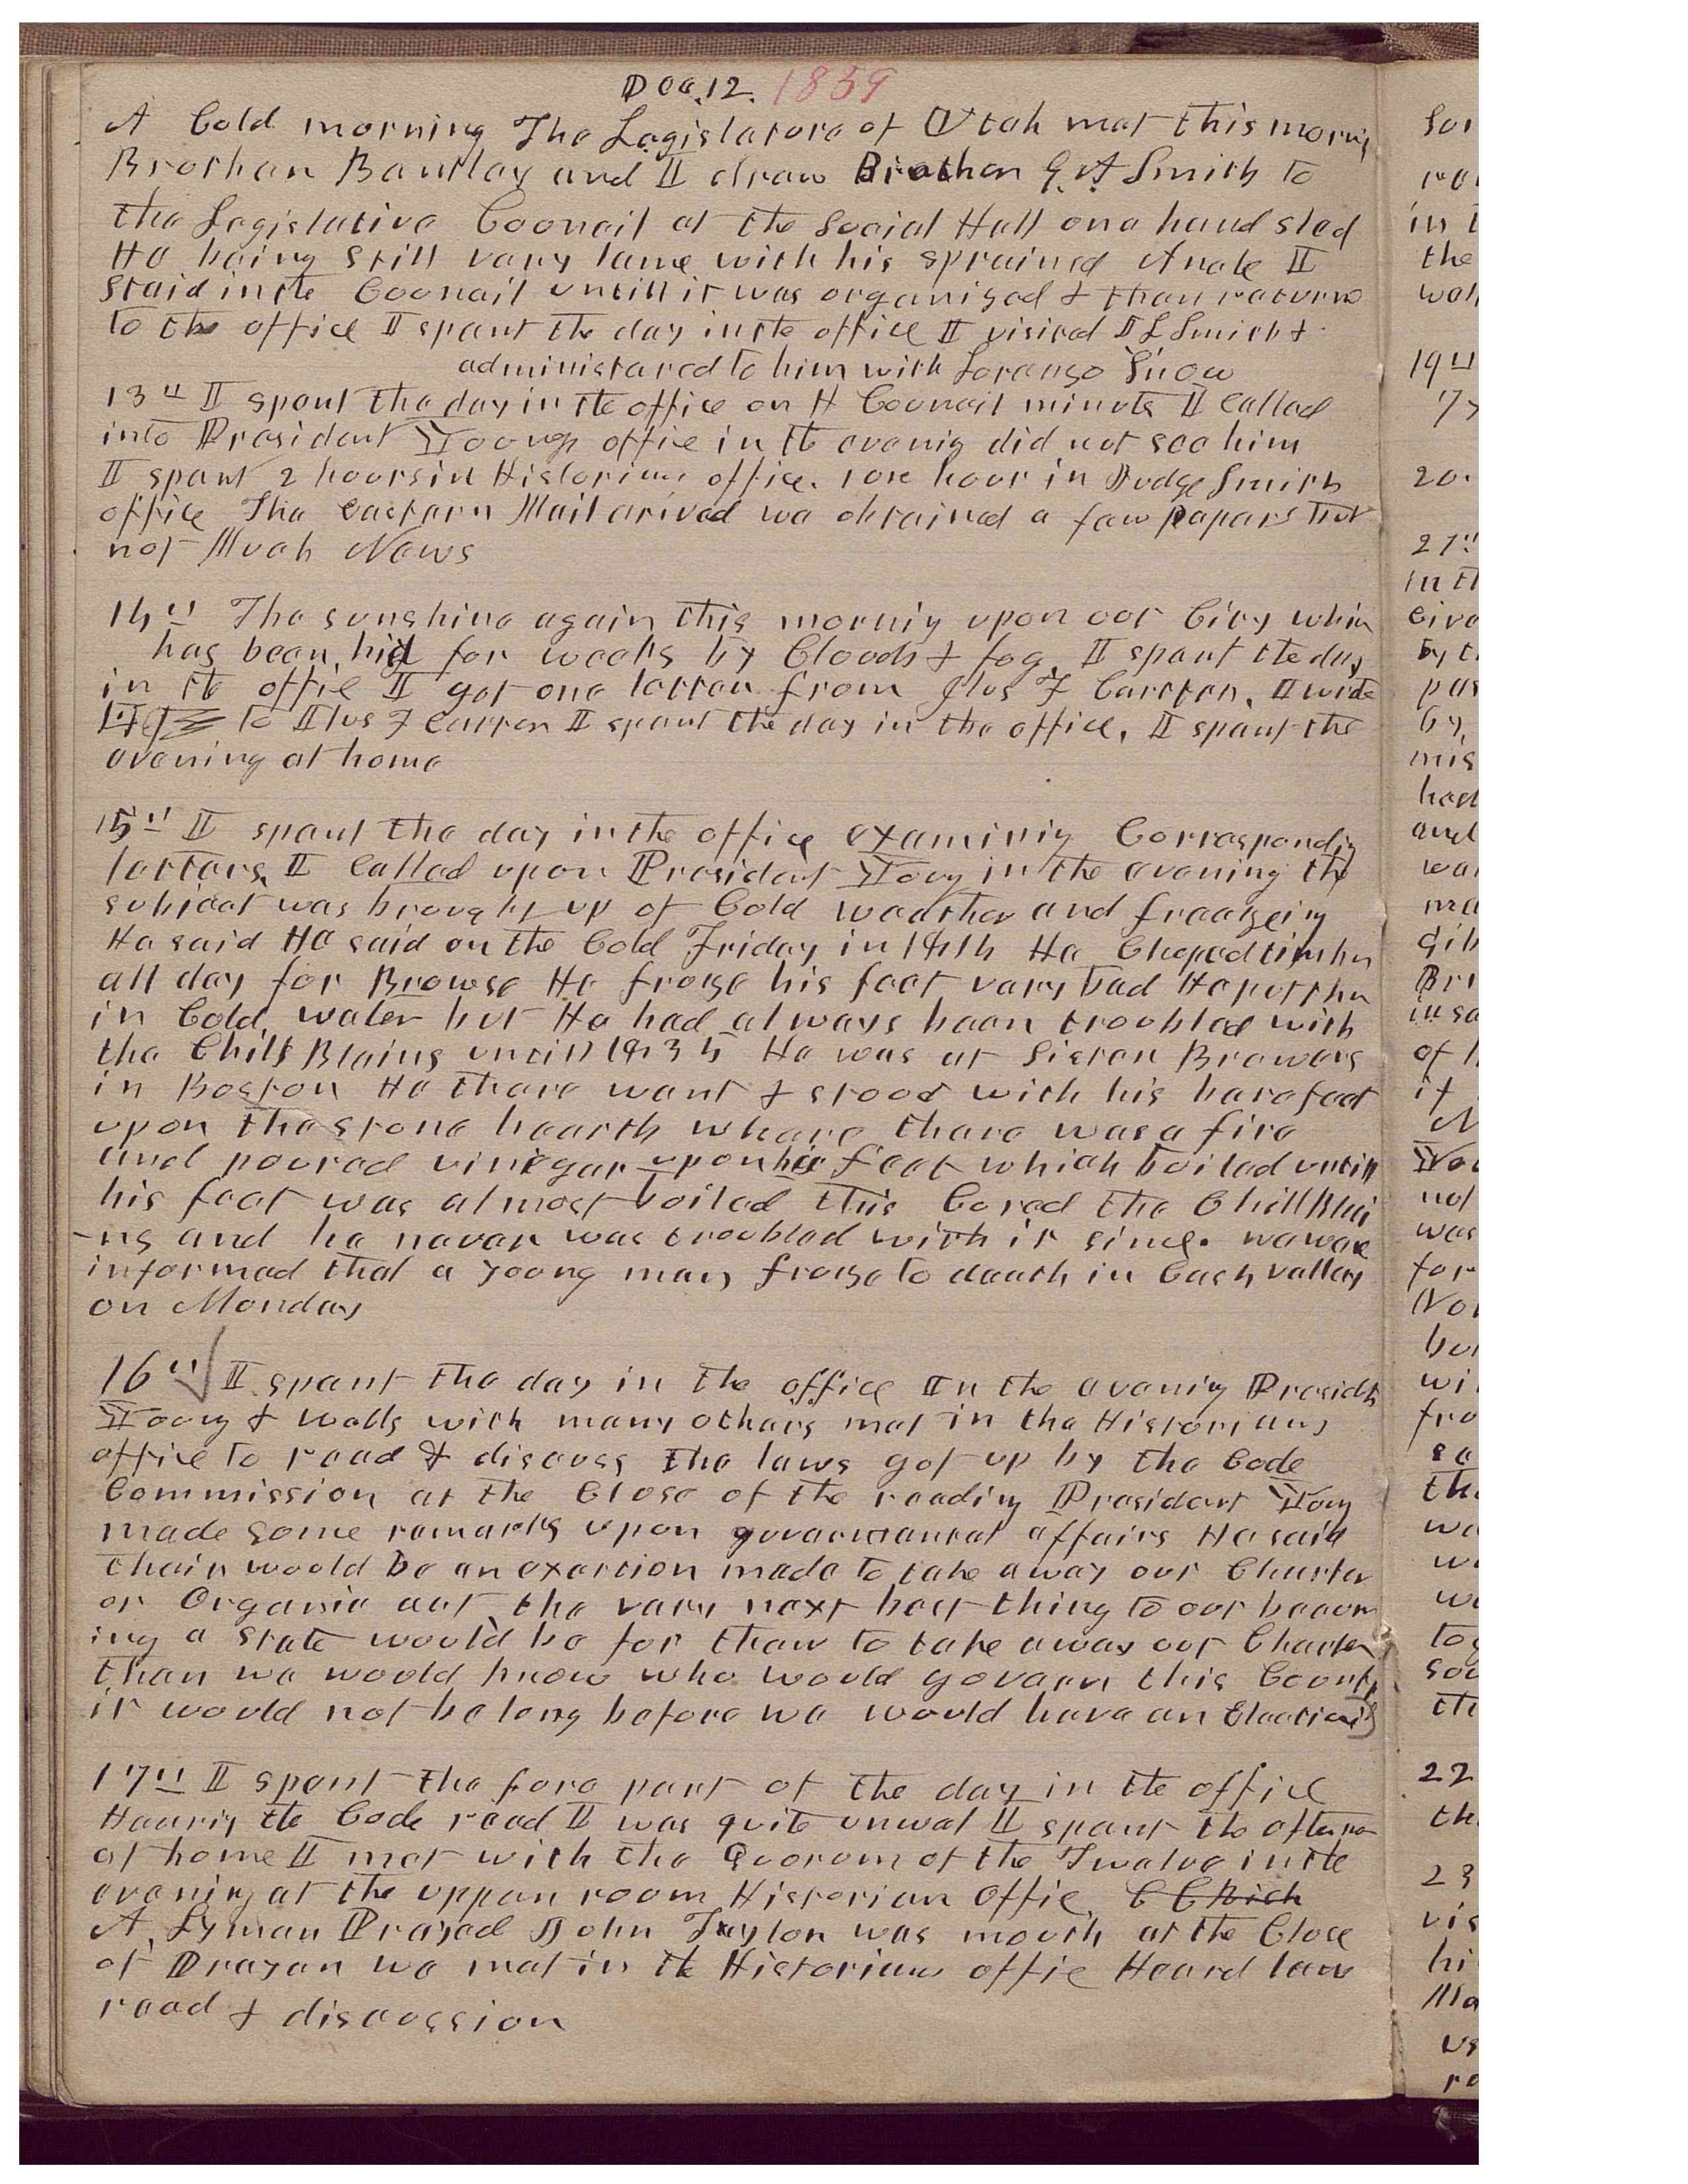 Dec. 12. 1859
A Cold morning The Legislature of Utah met this morning
Brother Bentley and I drew Brother G. A Smith to
the Legislative Council at the Social Hall on a hand sled
He being still very lame with his sprained Ancle I
staid in the Council untill it was organized & then returnd
to the office I spent the day in the office I visited J L Smith &
administered to him with Lorenzo Snow
13th I spent the day in the office on H Council minuts I Called
into President Youngs office in the evenig did not see him
I spent 2 hours in Historians office. 1 one hour in Judge Smith
office The Eastern Mail arived we obtained a few papers but
not Much News
14th The sun shine again this mornig upon our City which
has been hid for weeks by Clouds & fog. I spent the day
in the offie I got one letter from Ilus F Carter. I wrote
to Ilus F Carter I spent the day in the office, I spent the
evening at home
15th I spent the day in the office examinig Correspondig
letters. I Called upon President Young in the evening the
subject was brought up of Cold weather and freezeing
He said He said on the Cold Friday in 1814 He Choped timber
all day for Browse He froze his feet very bad He put them
in Cold water but He had always been troubled with
the Chill Blains untill 1835 He was at Sister Brewers
in Boston He there went & stood with his bare feet
upon the stone hearth where there was a fire
and poured vinegar upon his feet which boiled untill
his feet was almost boiled this Cured the Chill Blai
-ns and he never was troubled with it since. we ware
informed that a young man froze to death in Cach valley
on Monday
16th I spent the day in the office In the evenig Presidt
Young & Wells with many others met in the Historians
office to read & discuss the laws got up by the Code
Commission at the Close of the readig President Young
made some remarks upon govermental affairs He said
their would be an exertion made to take away our Charter
or Organic act the vary next best thing to our becom
ing a State would be for them to take away our Charter
then we would know who would govern this County
it would not be long before we would have an Election
17th I spent the fore part of the day in the office
Hearig the Code read I was quite unwel I spent the afternoo
at home I met with the Quorum of the Twelve in the
evenig at the upper room Historian Offie. C C Rich
A. Lyman Prayed John Taylor was mouth at the Close
of Prayer we met in the Historians offie Heard law
read & discussion